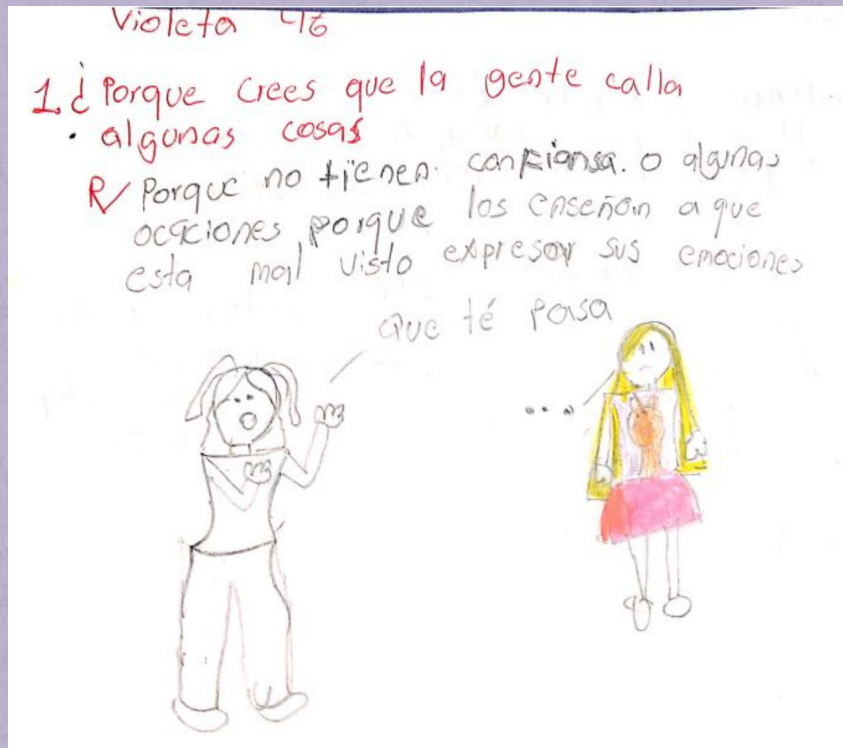 Violeta 4B
1 ¿Porque crees que la gente calla
. algunas cosas
R/ Porque no tienen. confiansa. o algunas
ocaciones porque los enseñan a que
esta mal visto expresar sus emociones
que té pasa
...